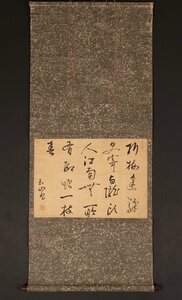 折梅逢驛
使寄与隴頭
人江南無所
有聊贈一枝
春